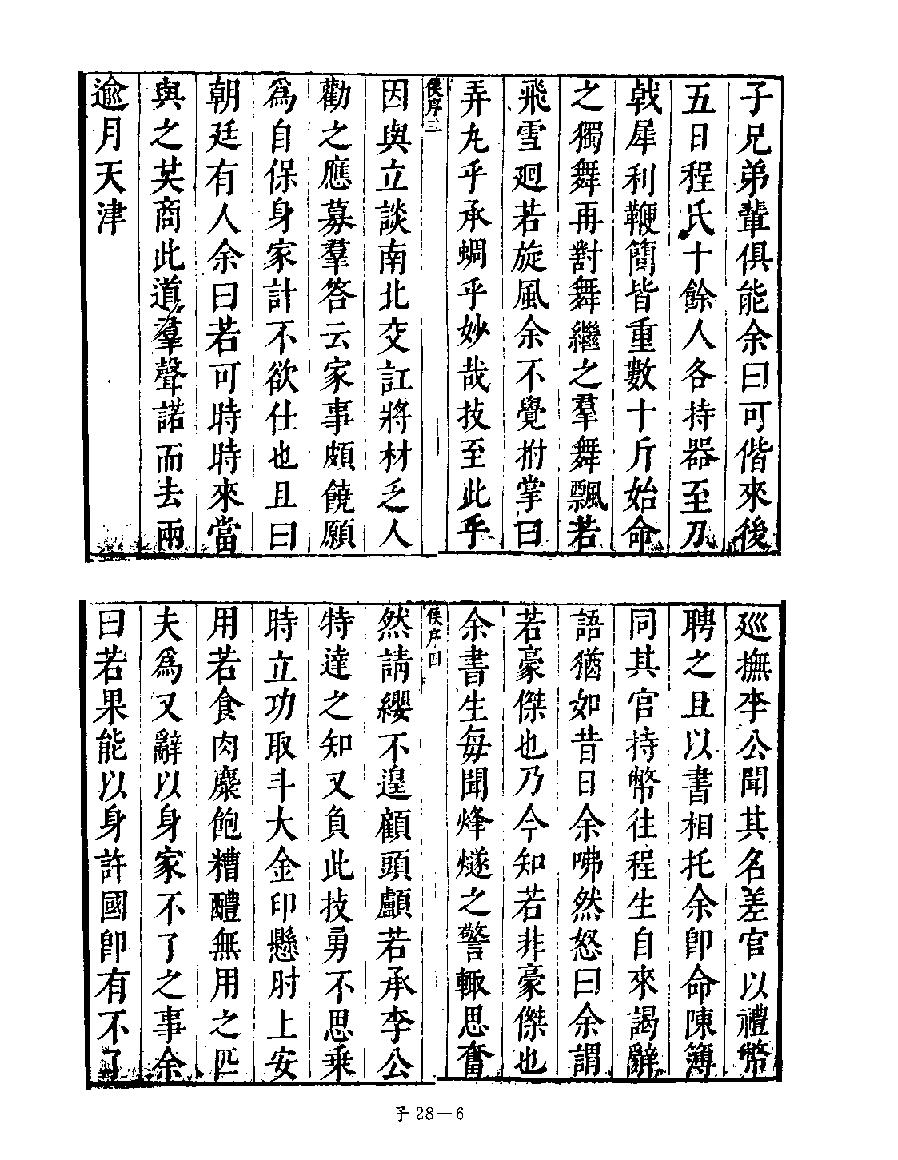 子兄弟輩俱能余曰可偕來後
五日程氏十餘人各持器至刀
戟犀利鞭簡皆重數十斤始命
之獨舞再對舞繼之羣舞飄若
飛雪廻若旋風余不覺拊掌曰
弄丸乎承蜩乎妙哉技至此乎
侯序三
因與立談南北交訌將材乏人
勸之應募羣答云家事頗饒願
爲自保身家計不欲仕也且曰
朝廷有人余曰若可時時來當
與之其商此道羣聲諾而去兩
逾月天津
廵撫李公聞其名差官以禮幣
聘之且以書相托余卽命陳簿
同其官持幣往程生自來謁辭
語猶如昔日余咈然怒曰余謂
若豪傑也乃今知若非豪傑也
余書生每聞烽燧之警輙思奮
侯序四
然請纓不遑顧頭顱若承李公
特達之知又負此技勇不思乘
時立功取斗大金印懸肘上安
用若食肉糜飽糟醴無用之匹
夫爲又辭以身家不了之事余
曰若果能以身許國卽有不了
子28—6